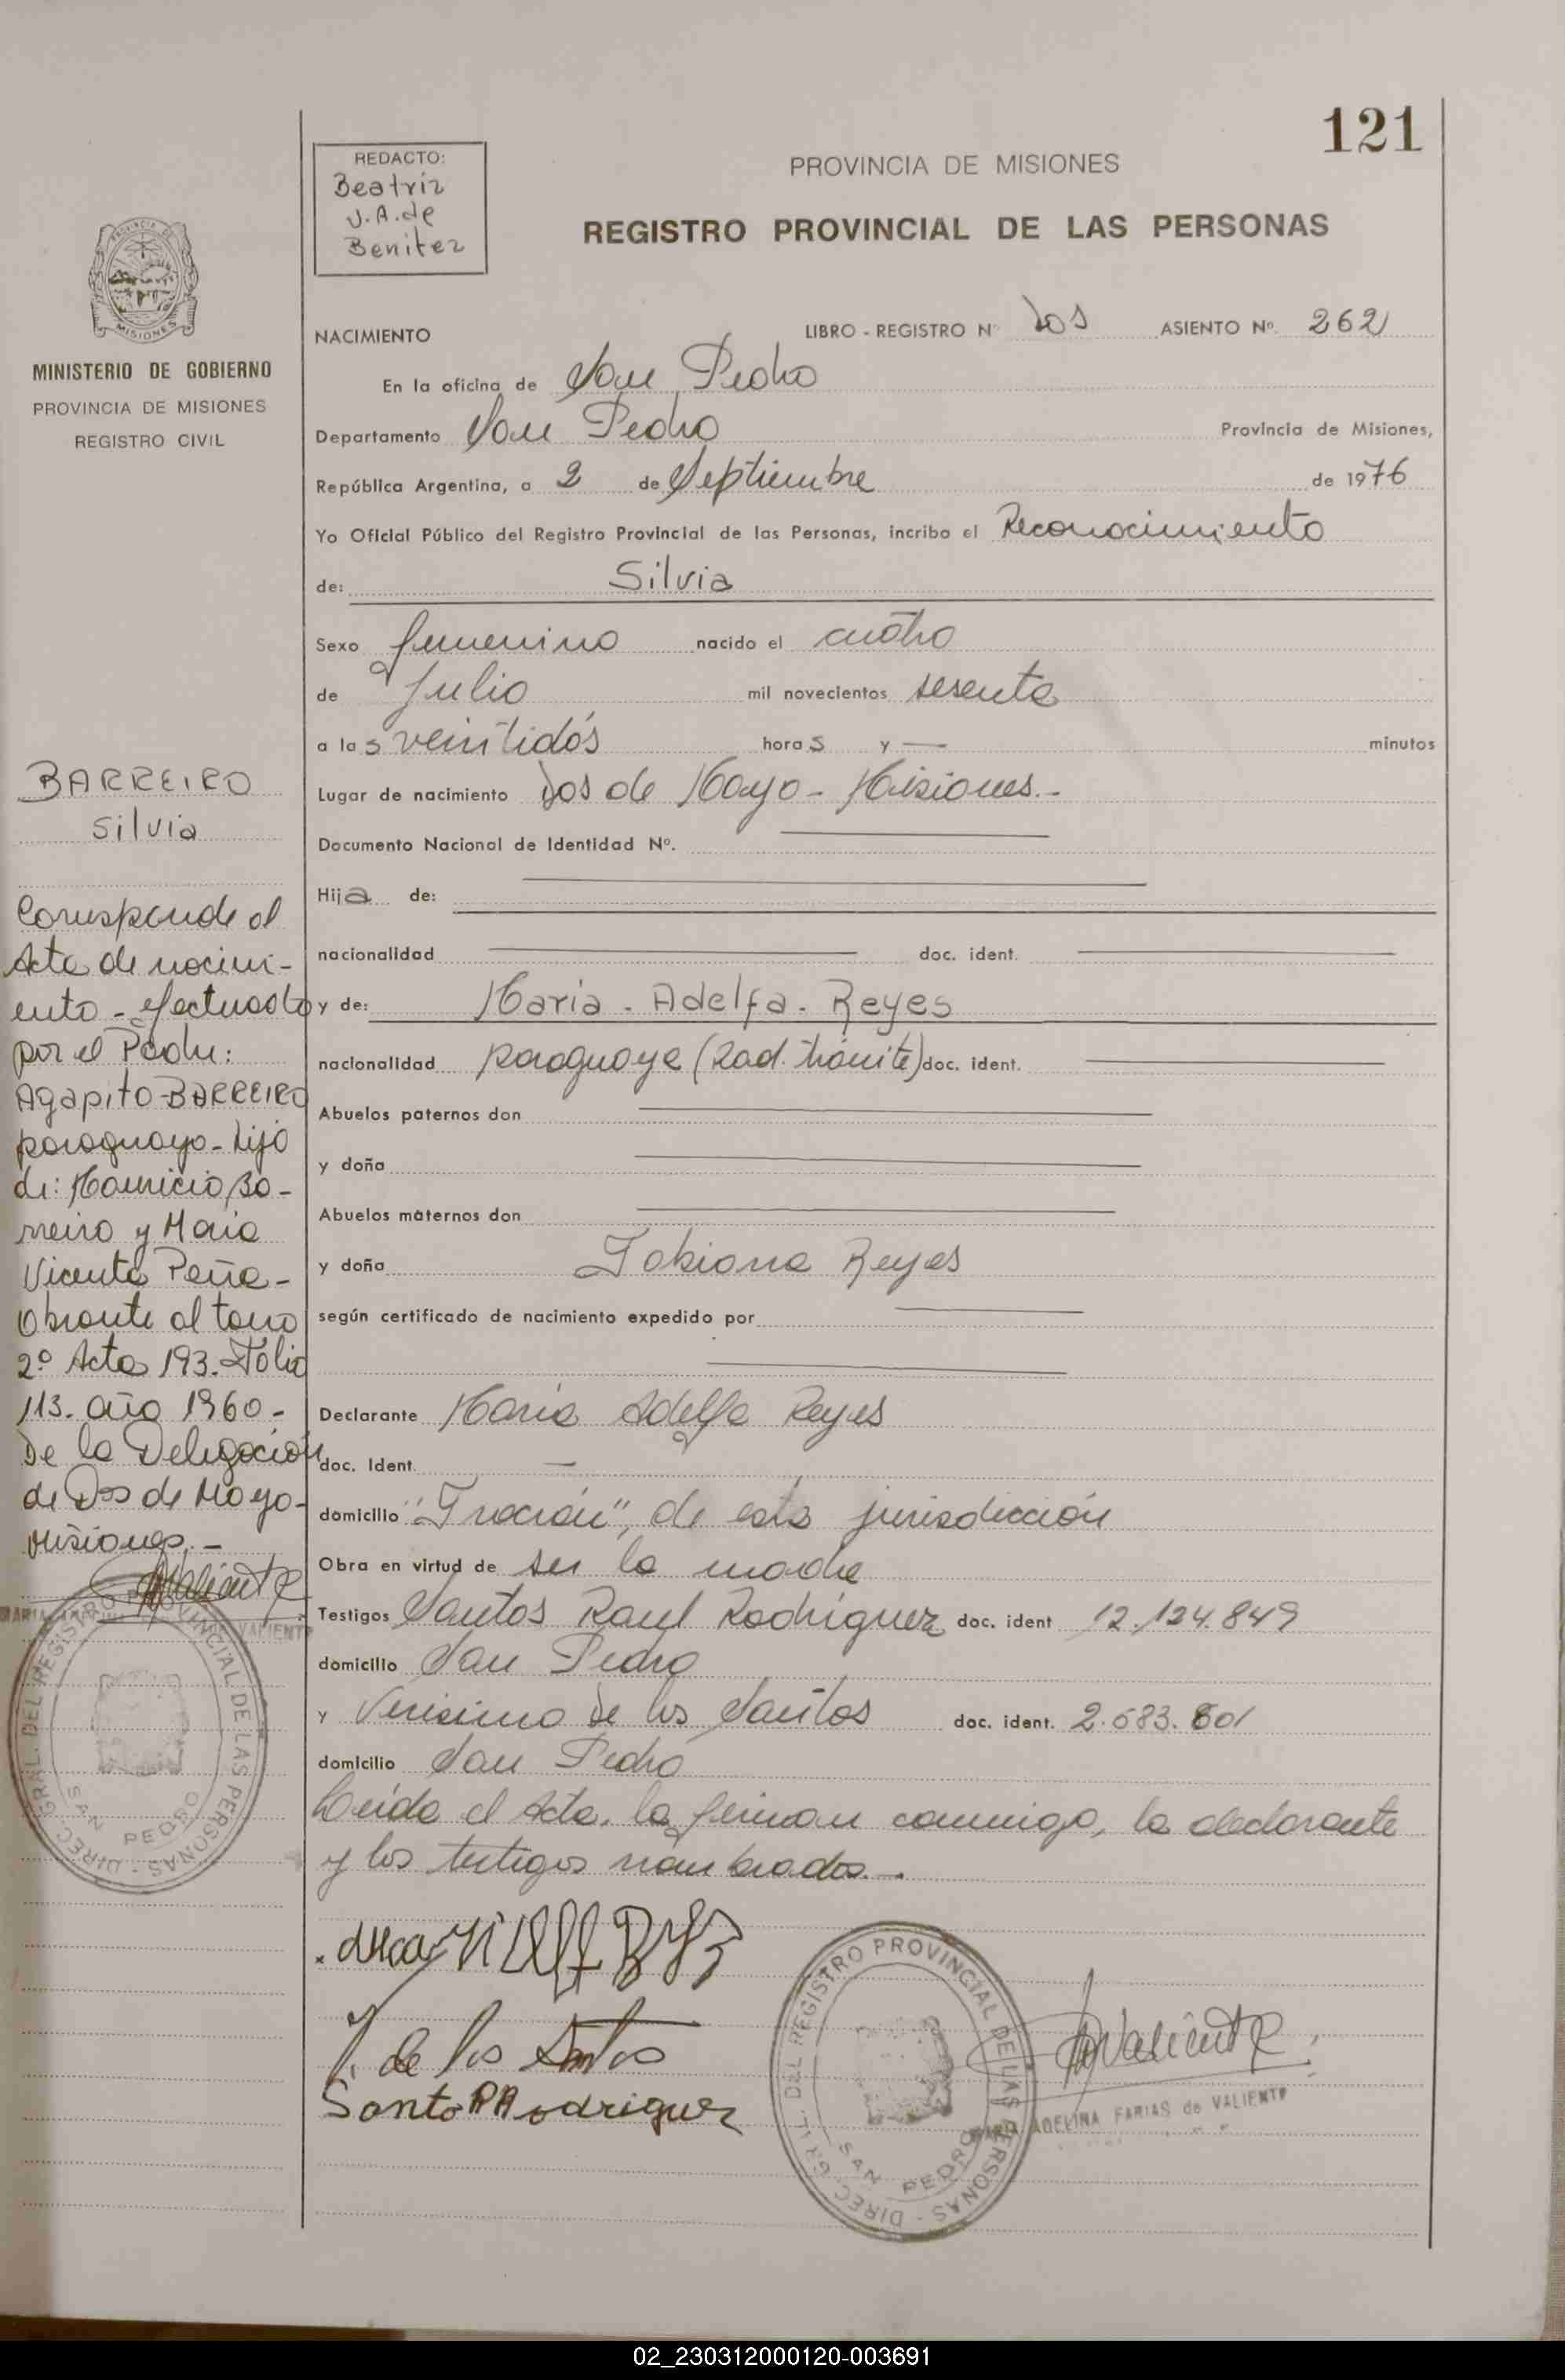 121
REDACTO:
Beatriz
V.A. de
Benitez
PROVINCIA DE MISIONES
REGISTRO PROVINCIAL DE LAS PERSONAS
MISIONES
MINISTERIO DE GOBIERNO
PROVINCIA DE MISIONES
REGISTRO CIVIL
NACIMIENTO LIBRO - REGISTRO Nº dos ASIENTO Nº. 262
En la oficina de San Pedro
Departamento San Pedro Provincia de Misiones,
República Argentina, a 2 de Septiembre de 1976
Yo Oficial Público del Registro Provincial de las Personas, incribo el Reconocimiento
de: Silvia
Sexo femenino nacido el cuatro
de Julio mil novecientos sesenta
a las veintidós horas y — minutos
Lugar de nacimiento Dos de Mayo - Misiones.-
Documento Nacional de Identidad Nº.
Hija de:
nacionalidad doc. ident.
y de: Maria - Adelfa - Reyes
nacionalidad paraguaya (Rad. trámite) doc. ident.
Abuelos paternos don
y doña
Abuelos maternos don
y doña Fabiana Reyes
según certificado de nacimiento expedido por
Declarante María Adelfa Reyes
doc. Ident. —
domicilio de esta jurisdicción
Obra en virtud de ser la madre
Testigos Santos Raul Rodriguez doc. ident 12.124.849
domicilio San Pedro
y Verisimo de los Santos doc. ident. 2.583.801
domicilio San Pedro
Leída el Acta, la firman conmigo, la declarante
y los testigos nombrados.-
V. de los Santos
Santo R Rodriguez
AValiente
ADELINA FARIAS de VALIENTE
DIREC. GRAL. DEL REGISTRO PROVINCIAL DE LAS PERSONAS - SAN PEDRO
BARREIRO
Silvia
Corresponde al
Acta de nacimi-
ento - efectuado
por el Padre:
Agapito BARREIRO
paraguayo - hijo
de: Mauricio Ba-
rreiro y María
Vicenta Peña -
Obrante al tomo
2º Acta 193. Folio
113. año 1960 -
De la Delegación
de Dos de Mayo -
Misiones. -
AValiente
DIREC. GRAL. DEL REGISTRO PROVINCIAL DE LAS PERSONAS - SAN PEDRO
02_230312000120-003691